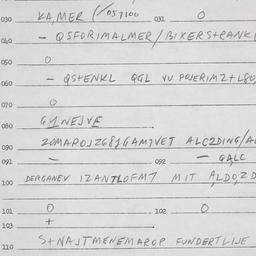 030 KA,MER (/057100 031 0
040 - QSFDRIMALMER/BIXERSTRANK
050 0
060 - QSTENKL QGL VU POJERIMZ+L80
070 0
080 G1NEJVE
090 20MAROJZ681GAM7VET ALCZDING/A
091 - 092 - GALC
100 DERGANEV IZANTLOFM7 MIT ALDOZD
101 0 102 0
103 +
110 S+NAJTMENEMAROP FUNDERTLIJE